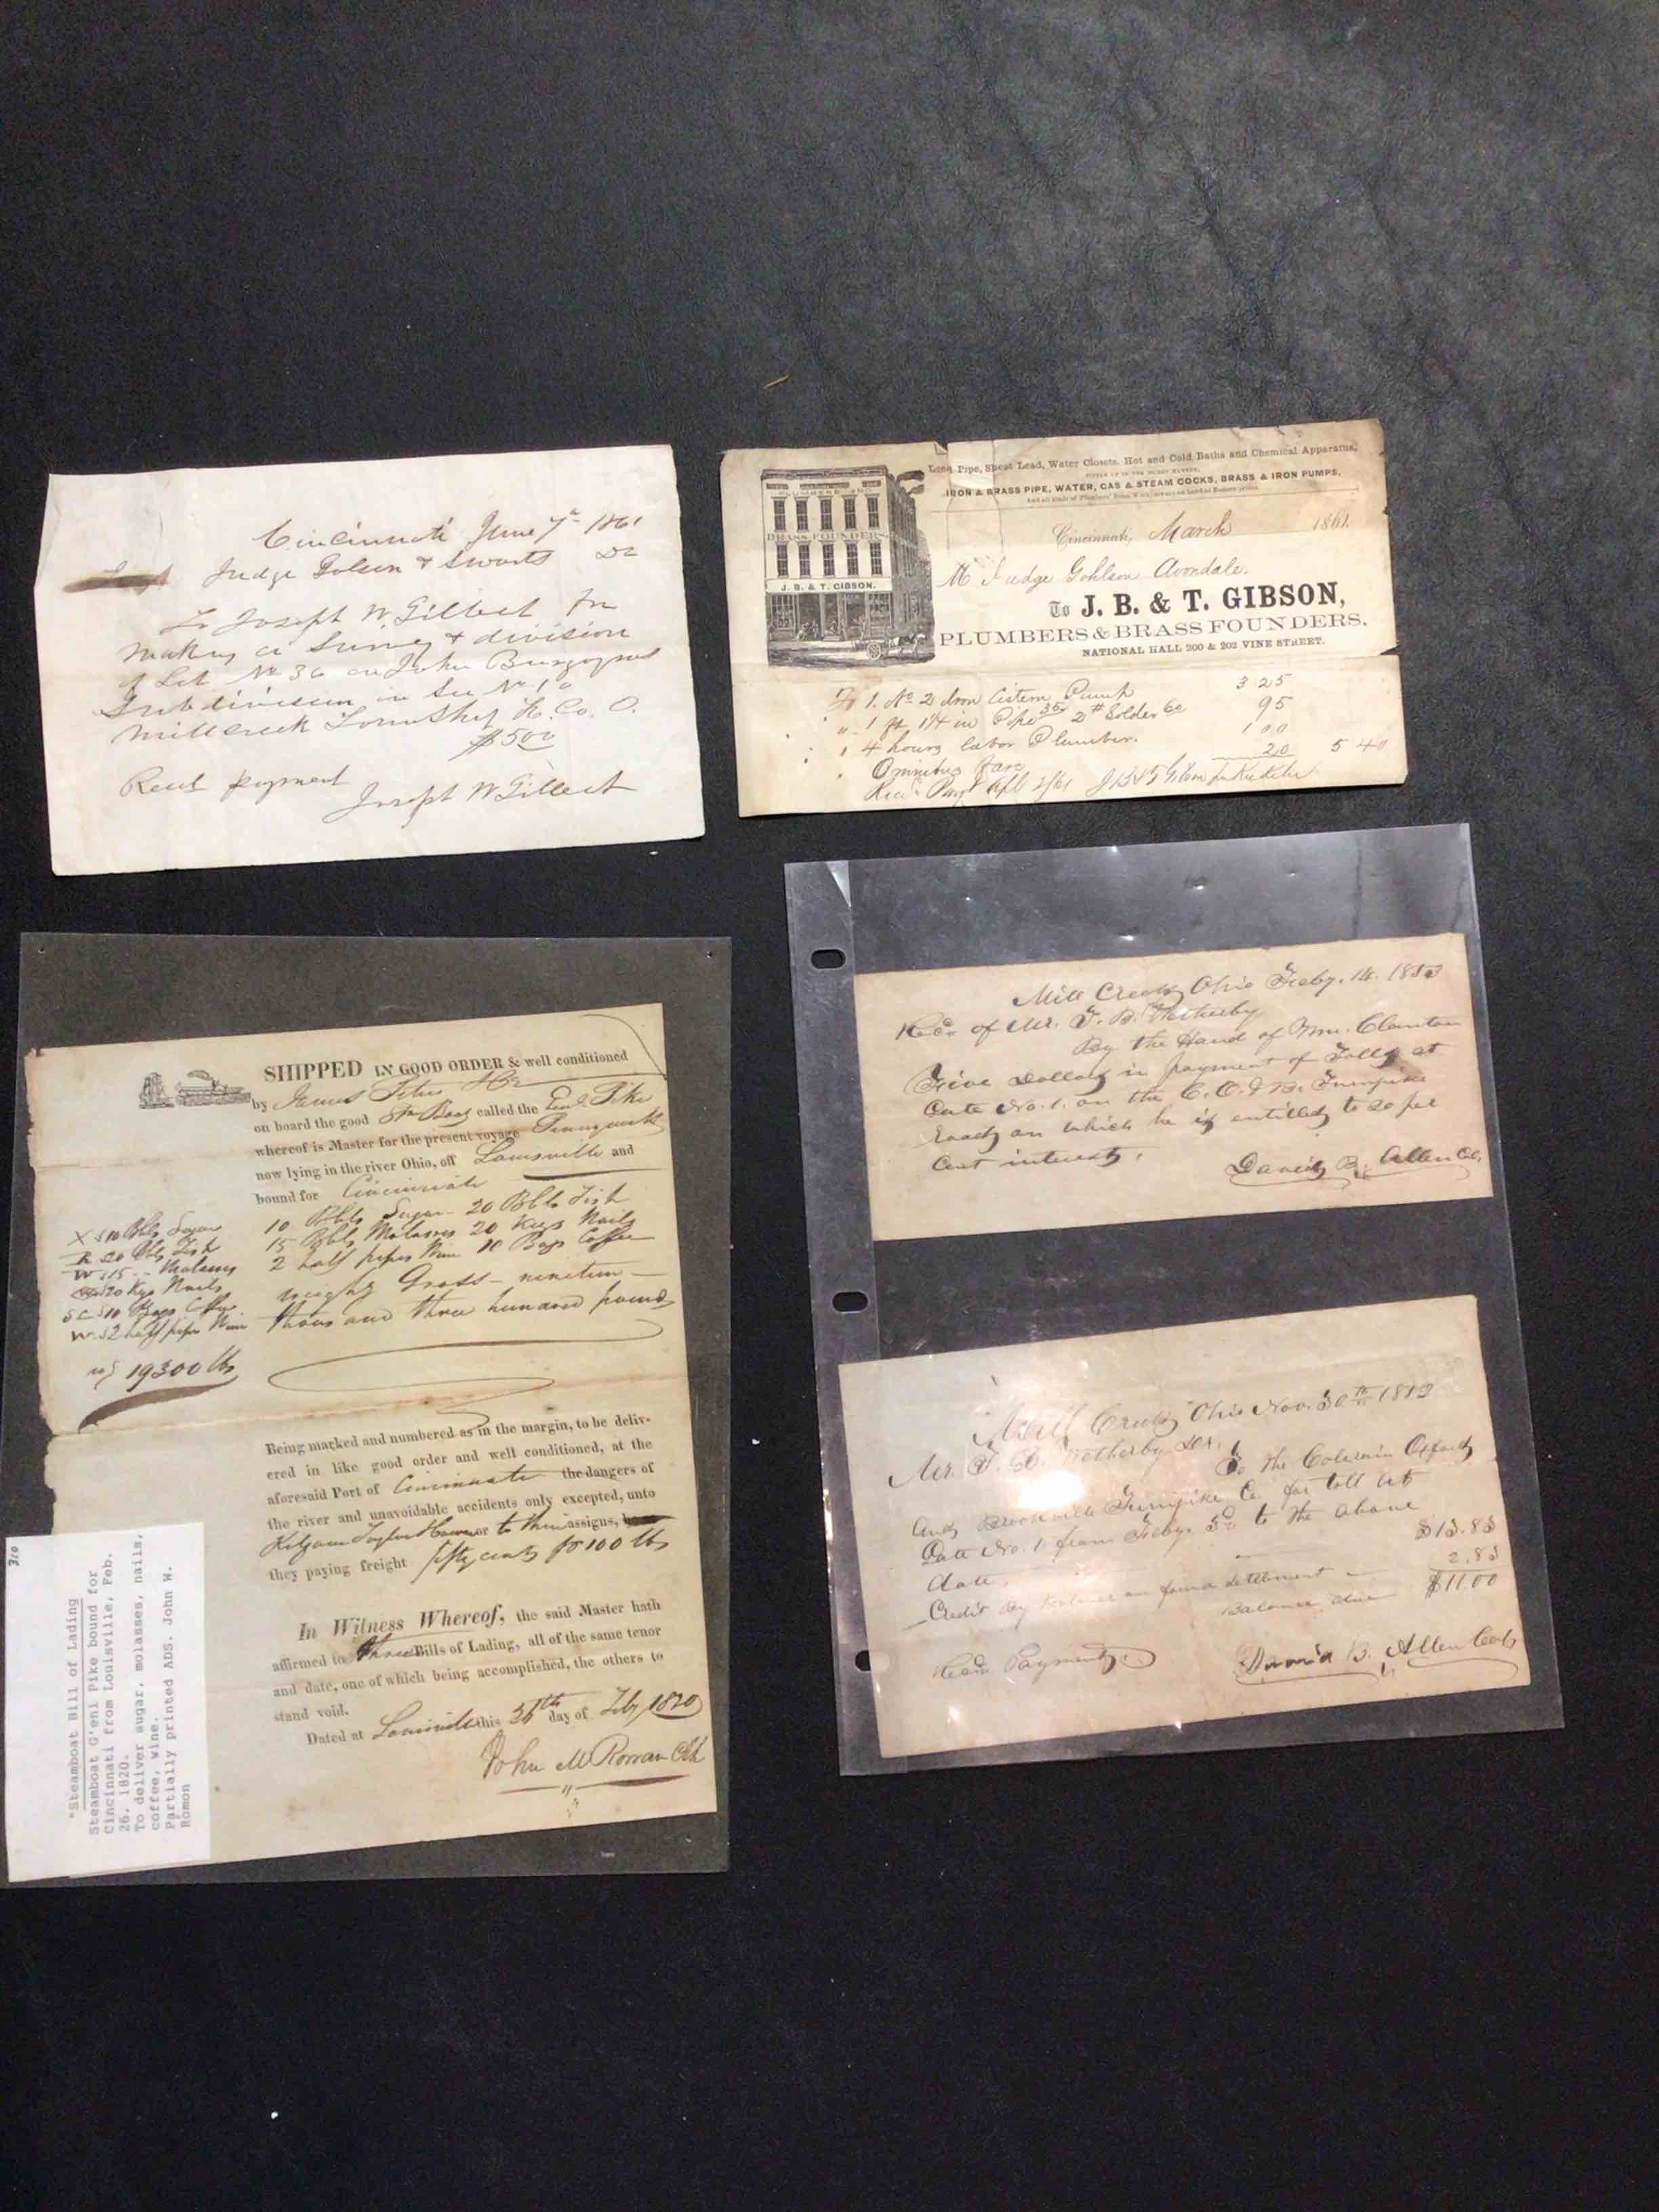 Cincinnati June 7th 1861
Judge Golsen & Swarts Dr
To Joseph W Gilbert for
making a Survey & division
of Lot No 36 on John Burgoynes
Subdivision in Sec No 10
Millcreek Township H. Co. O.
$5 00
Recd payment
Joseph W Gilbert
PLUMBERS AND
BRASS FOUNDERS
J. B. & T. GIBSON.
Pipe, Sheet Lead, Water Closets, Hot and Cold Baths and Chemical Apparatus,
IRON & BRASS PIPE, WATER, GAS & STEAM COCKS, BRASS & IRON PUMPS,
Cincinnati, March 1861.
M Judge Gohlson Avondale.
To J. B. & T. GIBSON,
PLUMBERS & BRASS FOUNDERS,
NATIONAL HALL 200 & 202 VINE STREET.
To 1. No 2 Iron Cistern Pump 3 25
" 1 ft 1 1/4 in Pipe 35 2# Solder 60 95
" 4 hours labor Plumber. 1 00
" Omnibus fare 20 5 40
Recd Payt Apl 2/61 J B & T Gibson
SHIPPED IN GOOD ORDER & well conditioned
by James
on board the good Sm Boat called the Genl. Pike
whereof is Master for the present voyage
now lying in the river Ohio, off Louisville and
bound for Cincinnati
X S 10 Bbls Sugar
R 20 Bbls Fish
W 15 -- Molasses
20 Kgs Nails
S C S 10 Bags Coffee
W. S 2 half pipes Wine
19300 lbs
10 Bbls Sugar - 20 Bbls Fish
15 Bbls Molasses 20 Kegs Nails
2 half pipes Wine 10 Bags Coffee
weight Gross - nineteen -
thous and three hundred pounds
Being marked and numbered as in the margin, to be deliv-
ered in like good order and well conditioned, at the
aforesaid Port of Cincinnati the dangers of
the river and unavoidable accidents only excepted, unto
Kilgour Taylor or to their assigns,
they paying freight fifty cents pr 100 lbs
In Witness Whereof, the said Master hath
affirmed to three Bills of Lading, all of the same tenor
and date, one of which being accomplished, the others to
stand void.
Dated at Louisville this 26th day of Feby 1820
John M Rowan Clk
310
"Steamboat Bill of Lading
Steamboat G'enl Pike bound for
Cincinnati from Louisville, Feb.
26, 1820.
To deliver sugar, molasses, nails,
coffee, wine.
Partially printed ADS. John W.
Romon
Mill Creek, Ohio Feby. 14. 1853
Recd of Mr. T. B. Wetherby
By the Hand of Wm. Clanton
Five Dollars in payment of Tolls at
Gate No. 1. on the C. O. & B. Turnpike
Road, on which he is entitled to 20 per
cent interest.
David B. Allen Col.
Mill Creek, Ohio Nov. 30th 1852
Mr. T. B. Wetherby Dr.
To the Colerain Oxford
and Brookville Turnpike Co. for toll at
Gate No. 1 from Feby. to the above
date, $13.83
Credit By balance on former settlement 2.83
Balance due $11.00
Recd. Payment,
David B. Allen Col.